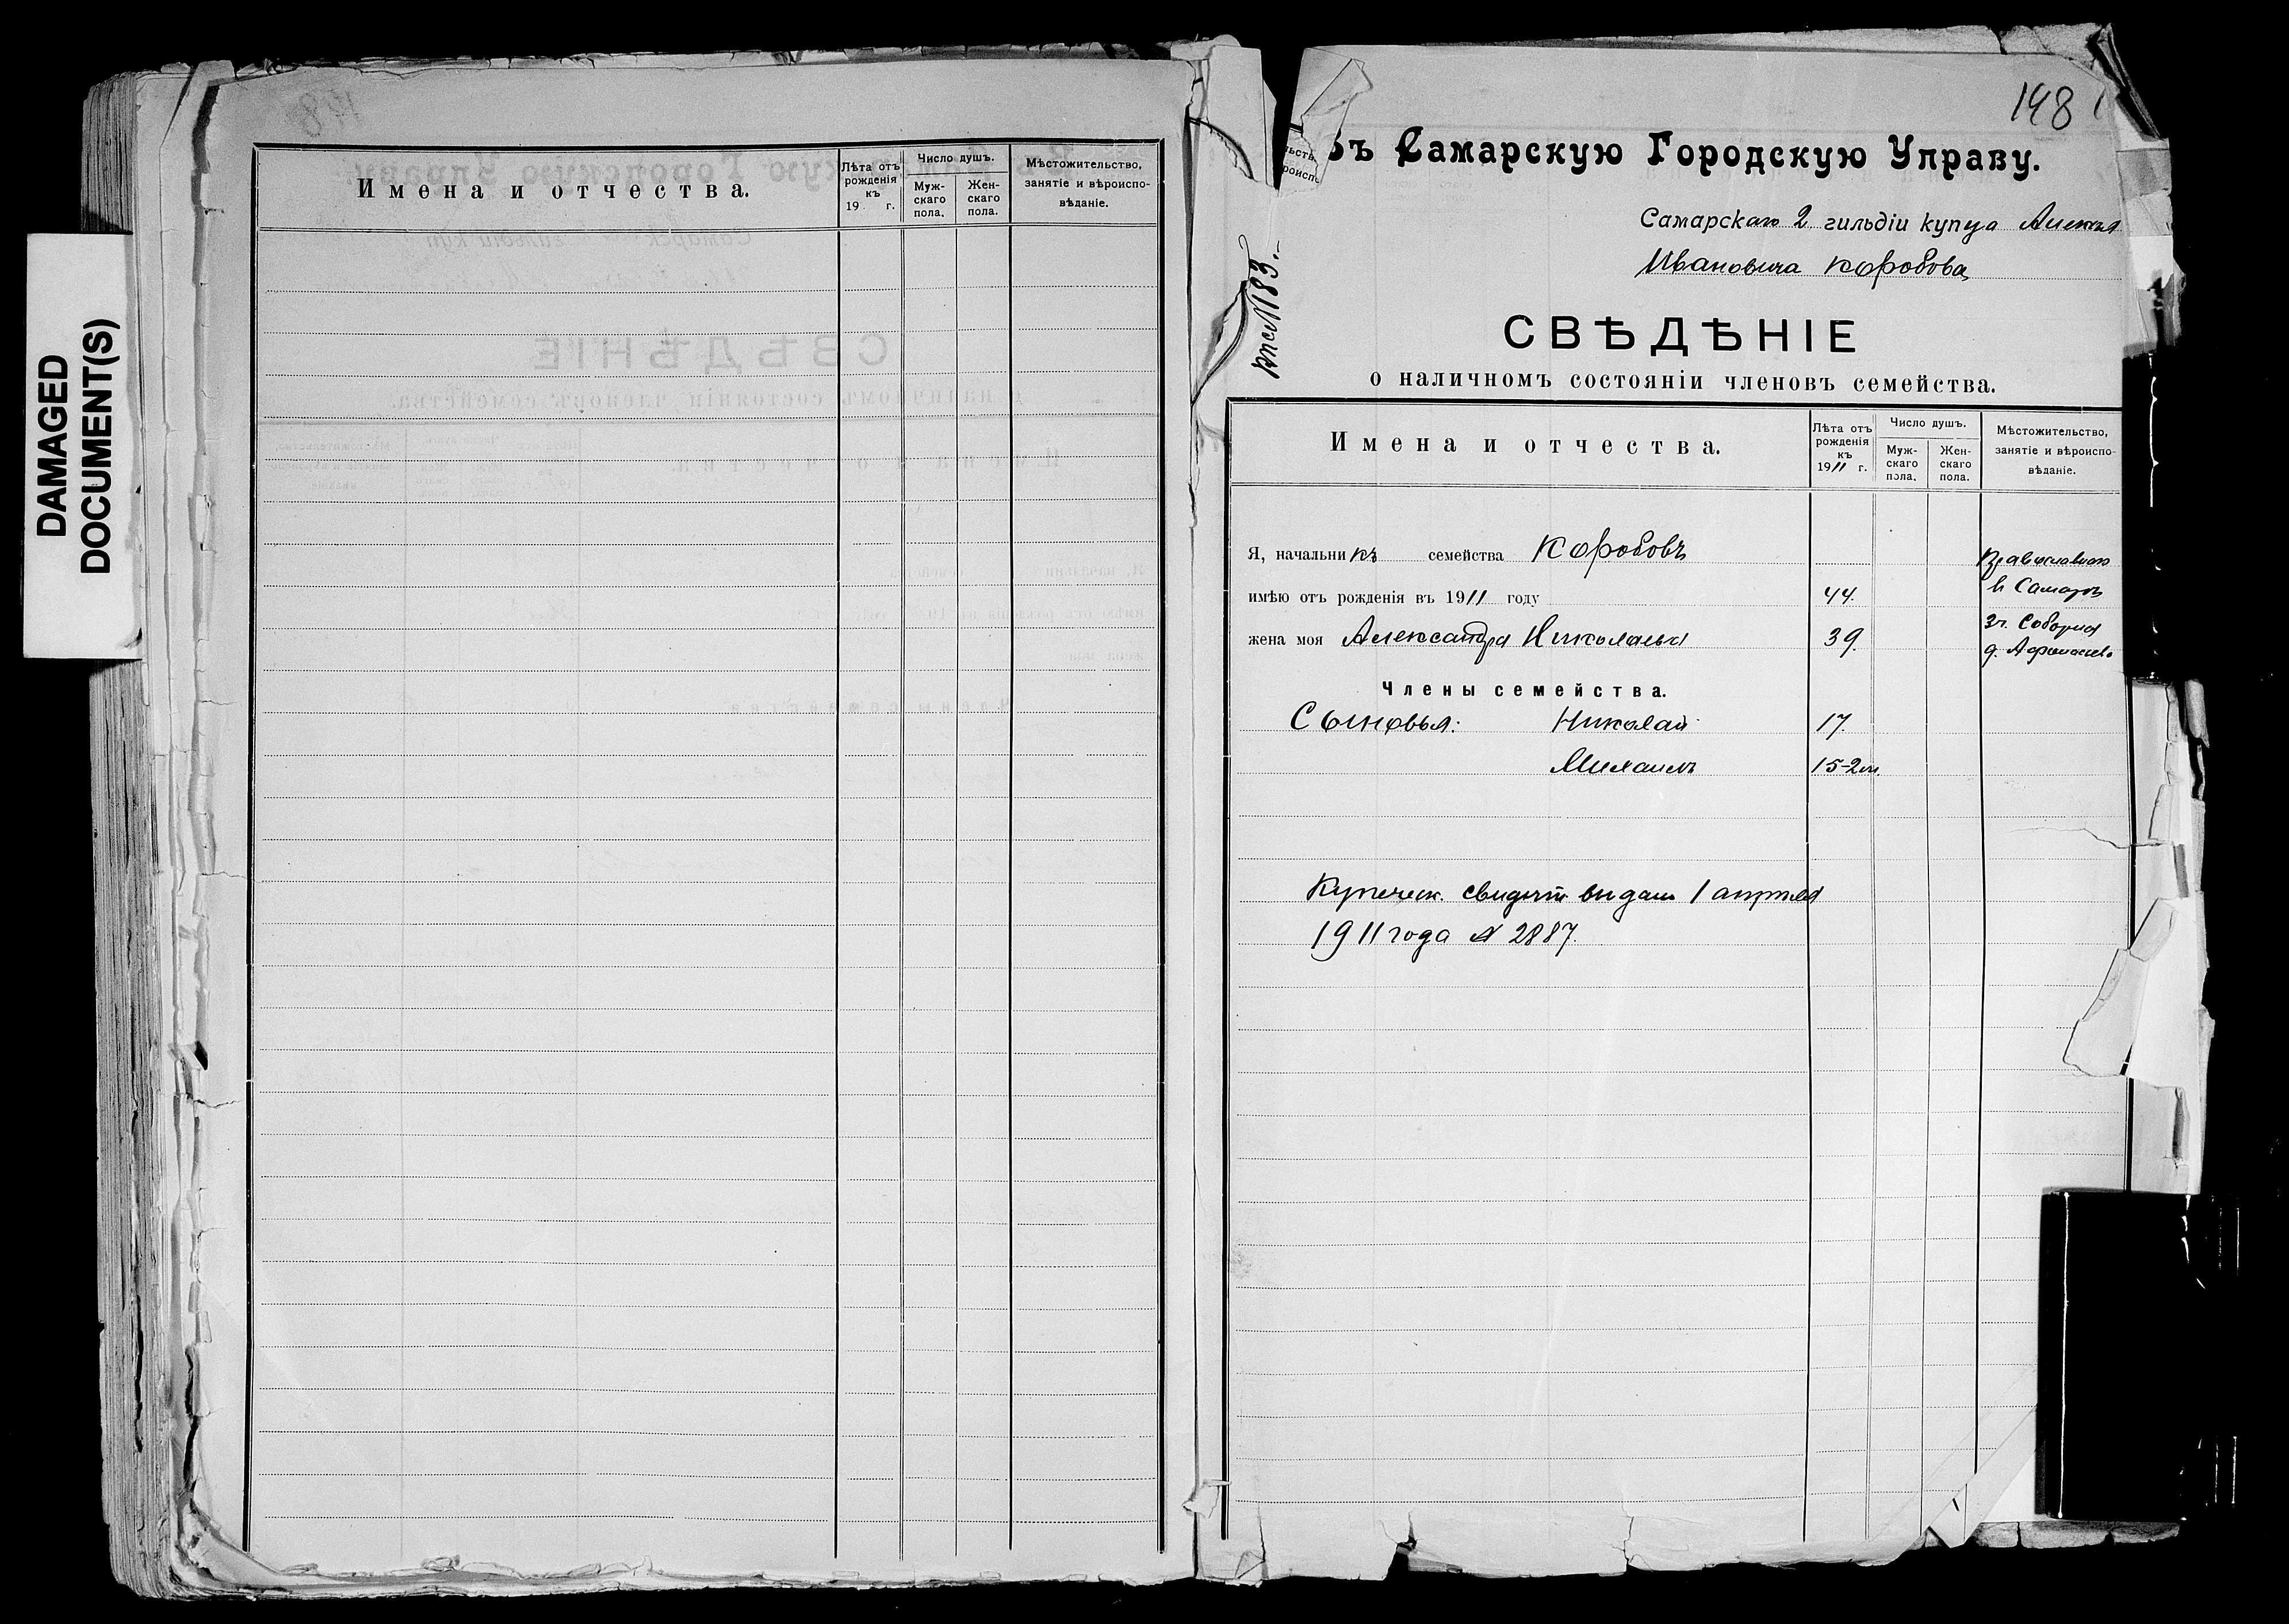 DAMAGED
DOCUMENT(S)
Имена и отчества.
Лѣта отъ рожденія къ 19 г.
Число душъ.
Мужскаго пола.
Женскаго пола.
Мѣстожительство, занятіе и вѣроисповѣданіе.
148
Въ Самарскую Городскую Управу.
Самарскаго 2 гильдіи купца Алексѣя
Ивановича Коробова
№183.
СВѢДѢНІЕ
о наличномъ состояніи членовъ семейства.
Имена и отчества.
Лѣта отъ рожденія къ 1911 г.
Число душъ.
Мужскаго пола.
Женскаго пола.
Мѣстожительство, занятіе и вѣроисповѣданіе.
Я, начальникъ семейства Коробовъ
Православнаго
имѣю отъ рожденія въ 1911 году 44.
в Самарѣ
жена моя Александра Николаевна 39.
Соборная
д. Афанасьева
Члены семейства.
Сыновья: Николай 17.
Михаилъ 15-2м.
Купеческ. свидѣт. выдан 1 апрѣля
1911 года № 2887.